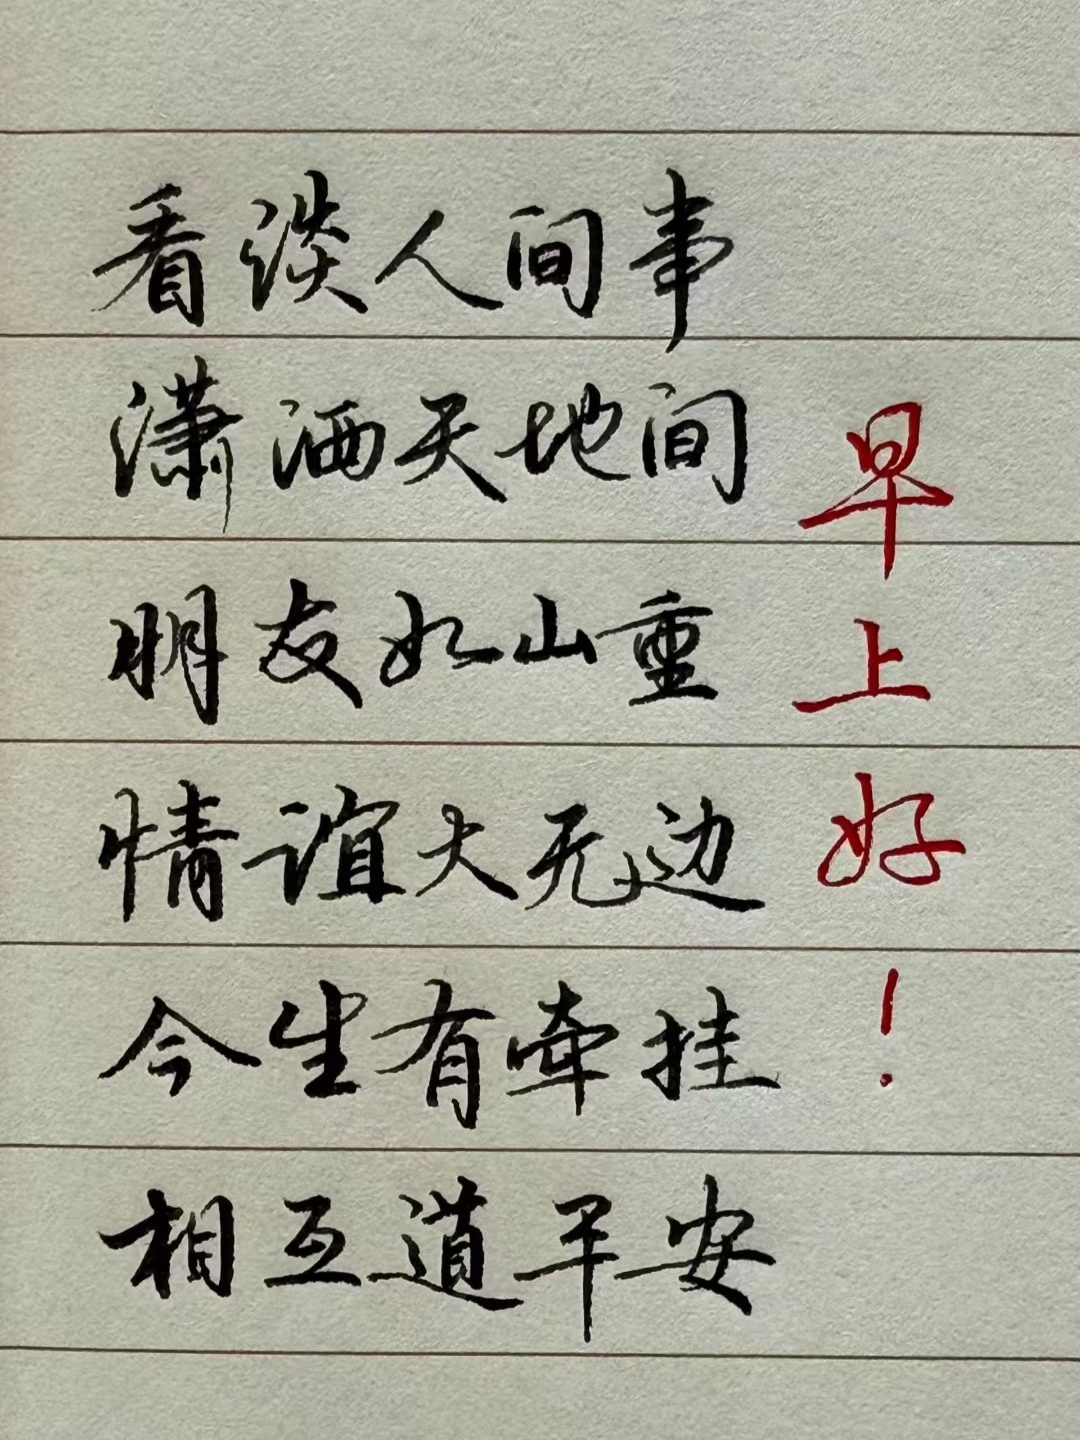 看淡人间事
潇洒天地间
朋友如山重
情谊大无边
今生有牵挂
相互道早安
早上好！